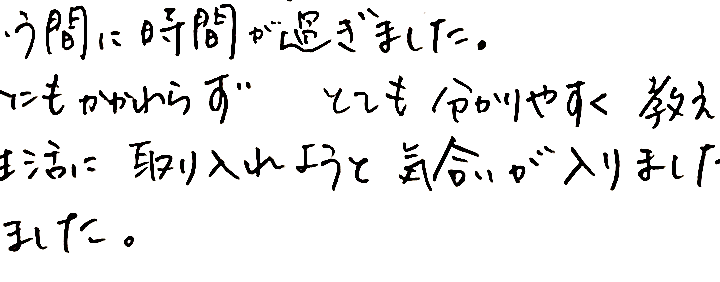 う間に時間が過ぎました。
にもかかわらず とても分かりやすく教え
生活に取り入れようと気合いが入りました
ました。